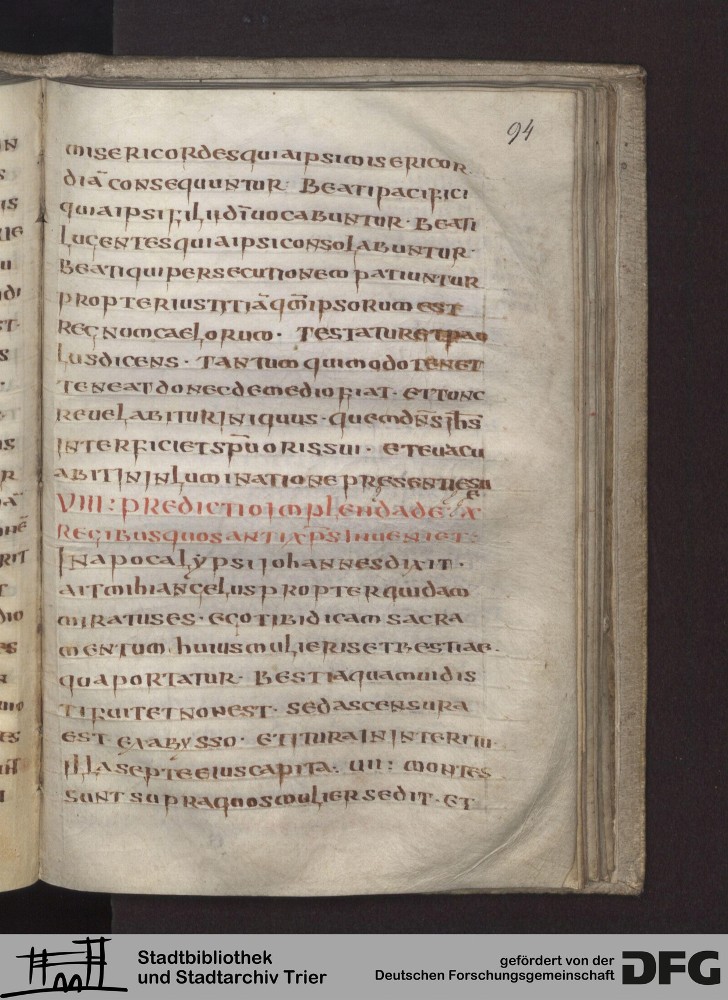 94
misericordesquiaipsimisericor
diācōnsequuntur· beatipacifici
quiaipsifiliidīuocabuntur· beati
lugentesquiaipsiconsolabuntur·
beatiquipersecutionempatiuntur
propteriustitiāqm̄ipsorumest
regnumcaelorum· testaturetpau
lusdicens· tantumquimodotenet
teneatdonecdemediofiat· ettunc
reuelabituriniquus· quemdn̄sih̄s
interficietsp̄uorissui· eteuacu
abitininluminationepresentiesu
e
VIII: predictioimplendade· x
regibusquosantix̄p̄sinueniet:
Inapocalẏpsijohannesdixit·
aitmihiangeluspropterquidam
miratuses· egotibidicamsacra
mentum· huiusmulierisetbestiae·
quaportatur· bestiaquamuidis
tifuitetnonest· sedascensura
est exabysso· etituraininteritu·
illasepteeiuscapita: uii: montes
suntsupraquosmuliersedit· et
Stadtbibliothek
und Stadtarchiv Trier
gefördert von der
Deutschen Forschungsgemeinschaft
DFG